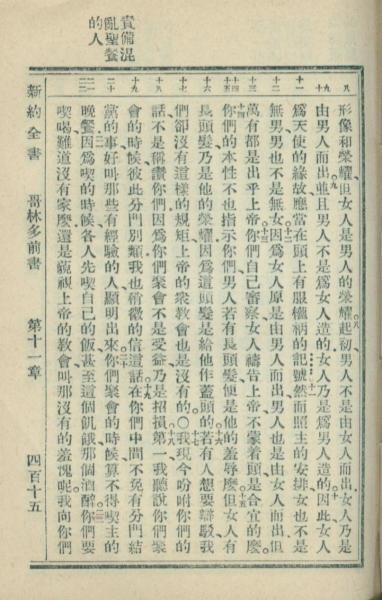 責備混
亂聖餐
的人
八
形像和榮耀但女人是男人的榮耀起初男人不是由女人而出女人乃是
九 十
由男人而出並且男人不是爲女人造的女人乃是爲男人造的因此女人
十一
爲天使的緣故應當在頭上有服權柄的記號然而照主的安排女也不是
十二
無男男也不是無女因爲女人原是由男人而出男人也是由女人而出但
十三
萬有都是出乎上帝你們自己審察女人禱告上帝不蒙着頭是合宜的麽
十四 十五
你們的本性不也指示你們男人若有長頭髮便是他的羞辱麽但女人有
十六
長頭髮乃是他的榮耀因爲這頭髮是給他作蓋頭的若有人想要辯駁我
十七
們卻沒有這樣的規矩上帝的衆教會也是沒有的〇我現今吩咐你們的
十八
話不是稱讚你們因爲你們聚會不是受益乃是招損第一我聽說你們聚
十九
會的時候彼此分門別類我也稍微的信這話在你們中間不免有分門結
二十
黨的事好叫那些有經驗的人顯明出來你們聚會的時候算不得喫主的
二一
晚餐因爲喫的時候各人先喫自己的飯甚至這個飢餓那個酒醉你們要
二二
喫喝難道沒有家麽還是藐視上帝的教會叫那沒有的羞愧呢我向你們
新約全書 哥林多前書 第十一章 四百十五